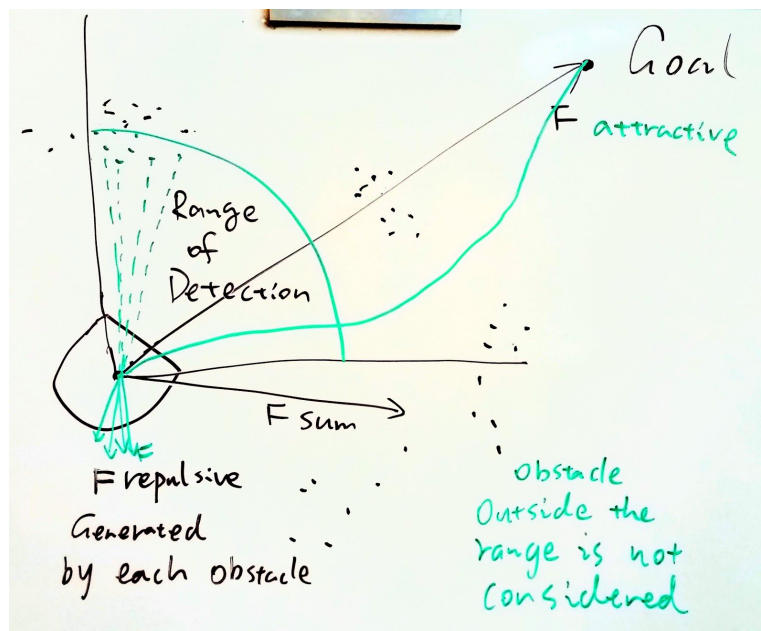 Goal
F attractive
Range
of
Detection
F sum
F repulsive
Generated
by each obstacle
Obstacle
Outside the
range is not
considered